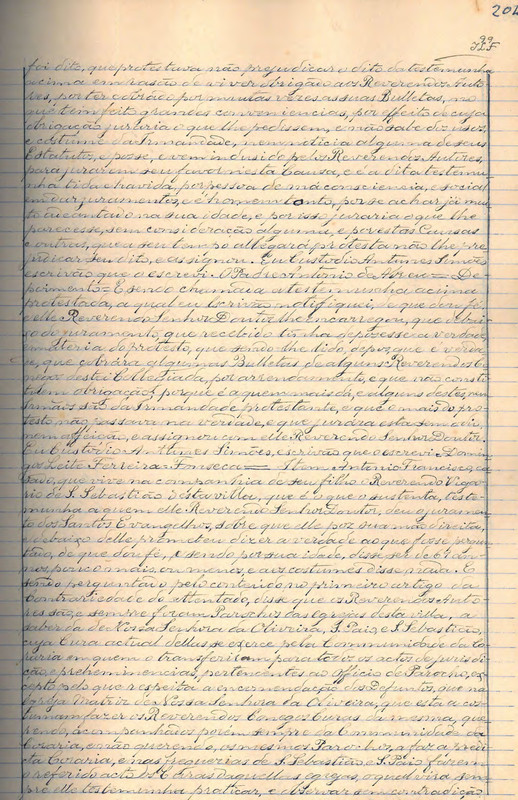 204
99
foi dito, que protestava não prejudicar o dito da testemunha
acima em rasão de viver obrigão aos Reverendos Auto-
res, por ter cobrado por muitas veses as suas Bulletas, no
que tem feito grandes conveniencias, por effeito de cuja
obrigação juraria o que lhe pedissem, e não sabe dos usos,
e costumes da Irmandade, nem noticia alguma de seus
Estatutos, e posse, e vem indusido pelos Reverendos Autores,
para jurar em seu favor nesta Causa, e é a dita testemu-
nha tida e havida, por pessoa de má consciencia, e social
em dar juramentos, e é homem tonto, por se achar já mui-
to adiantado na sua idade, e por isso juraria o que lhe
parecesse, sem consideração alguma, e por estas Causas
e outras, que a seu tempo allegará, protesta não lhe pre-
judicar seu dito, e assignou. Eu Custodio Antunes Simões
escrivão que o escrevi. O Padre Antonio de Abreu = De-
poimento = E sendo chamada a testemunha acima
protestada, a qual eu Escrivão notifiquei, de que dou fé,
e elle Reverendo Senhor Doutor lhe encarregou, que debai-
xo do juramento, que recebido tinha depozesse a verdade,
em materia do protesto, que sendo-lhe lido, depoz, que é verda-
de, que cobrára algumas Bulletas de alguns Reverendos Co-
negos desta Collegiada, por arrendamento, e que não consti-
tuem obrigação, porque é a quem mais dá, e alguns destes nem
Irmãos são da Irmandade protestante, e que o mais do pro-
testo, não passava na verdade, e que jurára esta sem odio,
nem affeição, e assignou com elle Reverendo Senhor Doutor.
Eu Custodio Anthunes Simões, escrivão que o escrevi. Domin-
gos Leite Ferreira = Fonseca = Item Antonio Francisco, ca-
sado, que vive na companhia de seu filho o Reverendo Viga-
rio de S. Sebastião desta villa, que é o que o sustenta, teste-
munha a quem elle Reverendo Senhor Doutor, deu o juramen-
to dos Santos Evangelhos, sobre que elle poz sua mão direita,
e debaixo delle prometeu dizer a verdade ao que fosse pergun-
tado, de que dou fé, e sendo por sua idade, disse ser de 61 an-
nos, pouco mais, ou menos, e aos costumes disse nada. E
sendo perguntado pelo contendo no primeiro artigo da
Contrariedade do attentado, disse que os Reverendos Auto-
res são, e sempre foram Parochos das Igrejas desta villa, a
saber da de Nossa Senhora da Oliveira, S. Paio, e S. Sebastião,
cuja Cura actual dellas se exerce pela Communidade da Co-
raria em quem o transferiram para todos os actos de jurisdi-
ção, e prehemimencias, pertencentes ao Officio de Parocho, ex-
cepto pelo que respeita a encomendação dos Defuntos, que na
Igreja Matriz de Nossa Senhora da Oliveira, que esta a cos-
tumam fazer os Reverendos Conegos Curas da mesma, que-
rendo, acompanhados porém sempre da Communidade da
Coraria, e não querendo, os mesmos Parochos, a faz a predi-
ta Coraria, e nas freguezias de S. Sebastião, e S. Paio, fazem
o referido acto os Curas daquellas egrejas, o qual vira sem-
pre elle testemunha praticar, e observar sem contradição